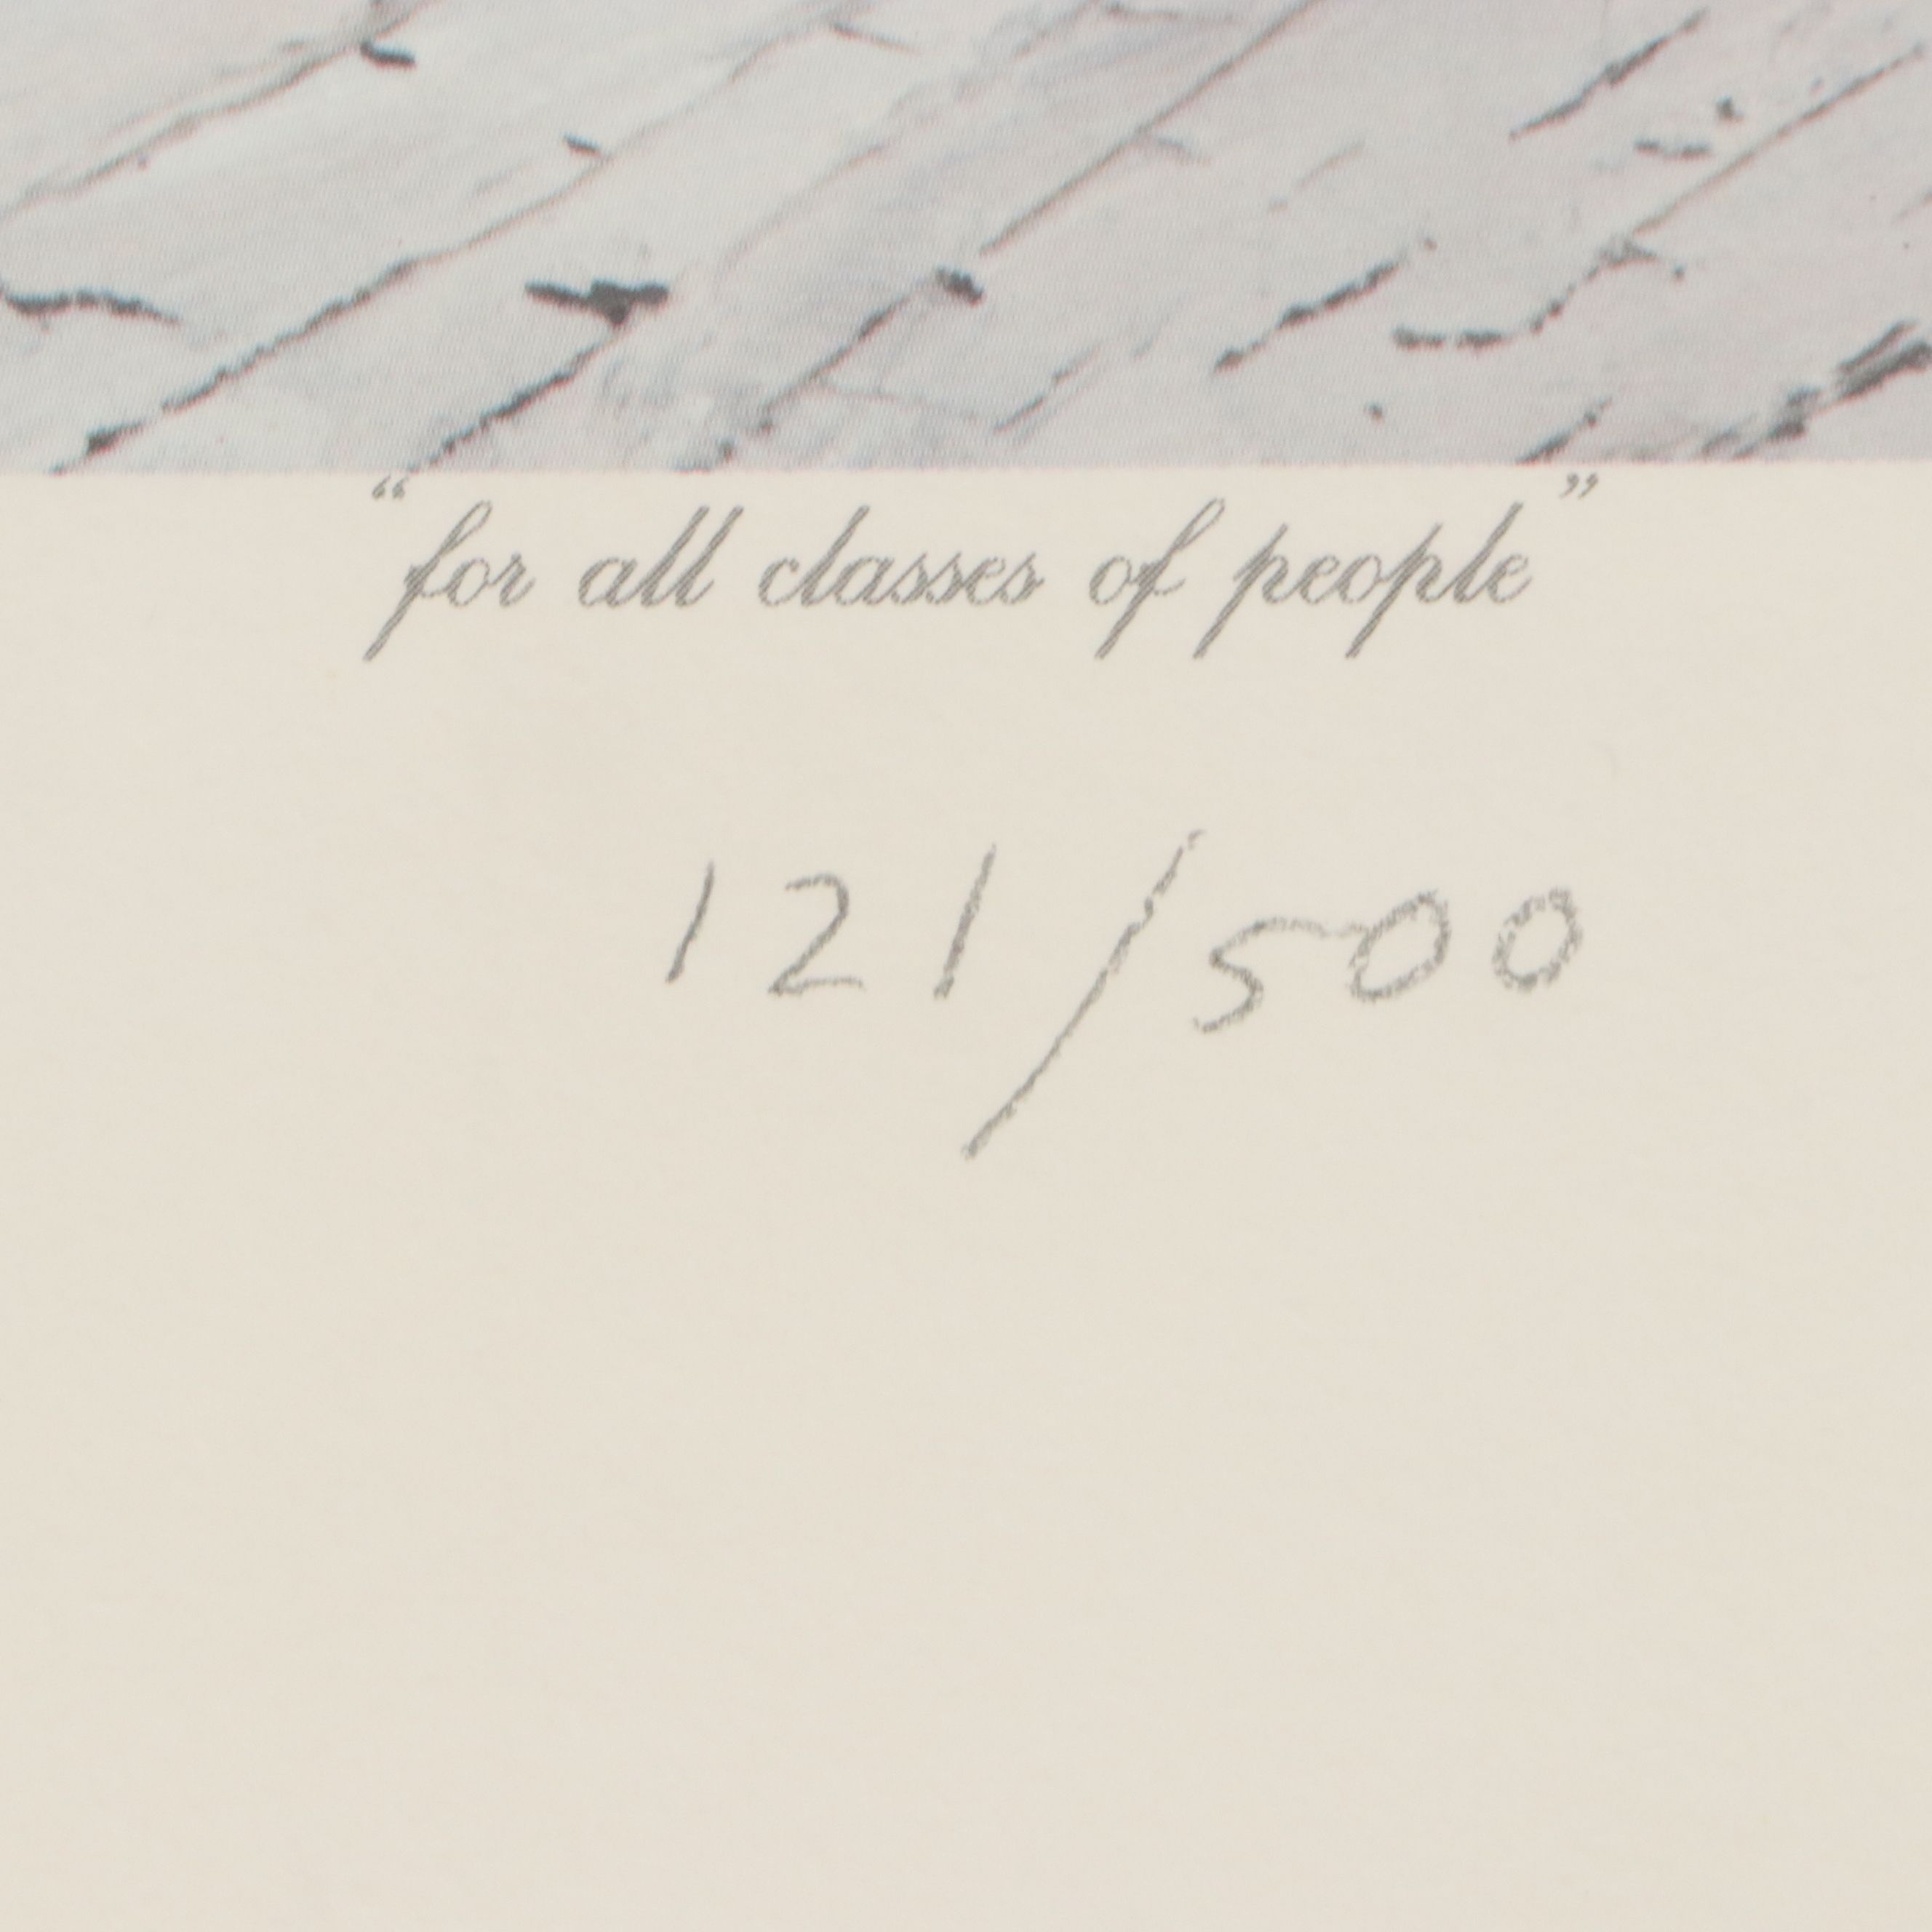 “for all classes of people”
121/500